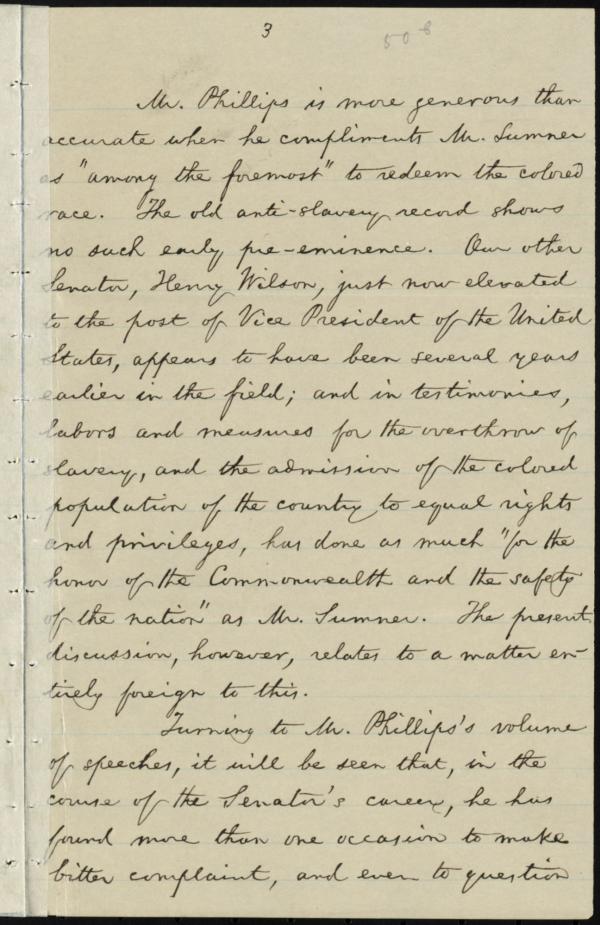 3
508
Mr. Phillips is more generous than
accurate when he compliments Mr. Sumner
as "among the foremost" to redeem the colored
race. The old anti-slavery record shows
no such early pre-eminence. Our other
Senator, Henry Wilson, just now elevated
to the post of Vice President of the United
States, appears to have been several years
earlier in the field; and in testimonies,
labors and measures for the overthrow of
slavery, and the admission of the colored
population of the country to equal rights
and privileges, has done as much "for the
honor of the Commonwealth and the safety
of the nation" as Mr. Sumner. The present
discussion, however, relates to a matter en-
tirely foreign to this.
Turning to Mr. Phillips's volume
of speeches, it will be seen that, in the
course of the Senator's career, he has
found more than one occasion to make
bitter complaint, and even to question